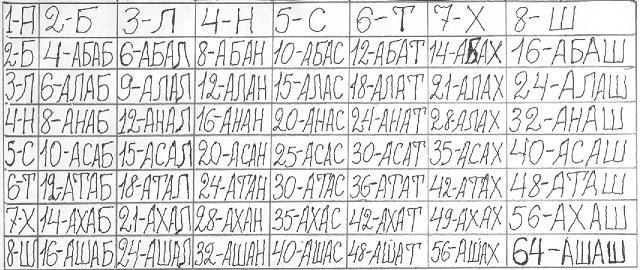 1-А 2-Б 3-Л 4-Н 5-С 6-Т 7-Х 8-Ш
2-Б 4-АБАБ 6-АБАЛ 8-АБАН 10-АБАС 12-АБАТ 14-АБАХ 16-АБАШ
3-Л 6-АЛАБ 9-АЛАЛ 12-АЛАН 15-АЛАС 18-АЛАТ 21-АЛАХ 24-АЛАШ
4-Н 8-АНАБ 12-АНАЛ 16-АНАН 20-АНАС 24-АНАТ 28-АЛАХ 32-АНАШ
5-С 10-АСАБ 15-АСАЛ 20-АСАН 25-АСАС 30-АСАТ 35-АСАХ 40-АСАШ
6-Т 12-АТАБ 18-АТАЛ 24-АТАН 30-АТАС 36-АТАТ 42-АТАХ 48-АТАШ
7-Х 14-АХАБ 21-АХАЛ 28-АХАН 35-АХАС 42-АХАТ 49-АХАХ 56-АХАШ
8-Ш 16-АШАБ 24-АШАЛ 32-АШАН 40-АШАС 48-АШАТ 56-АШАХ 64-АШАШ